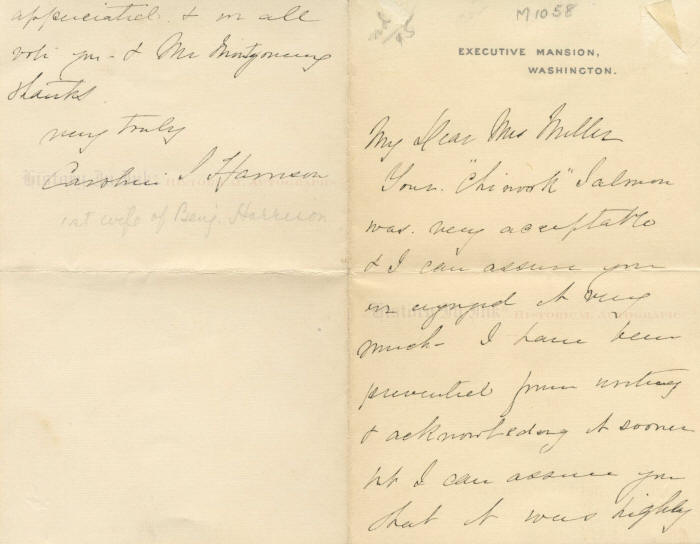 M1058
EXECUTIVE MANSION,
WASHINGTON.
My Dear Mrs Miller
Your "Chinook" Salmon
was very acceptable
& I can assure you
we enjoyed it very
much - I have been
prevented from writing
& acknowledging it sooner
but I can assure you
that it was highly
appreciated. & we all
vote you - & Mr Montgomery
thanks
very truly
Caroline S Harrison
1st wife of Benj. Harrison
History In Ink HISTORICAL AUTOGRAPHS
History In Ink HISTORICAL AUTOGRAPHS